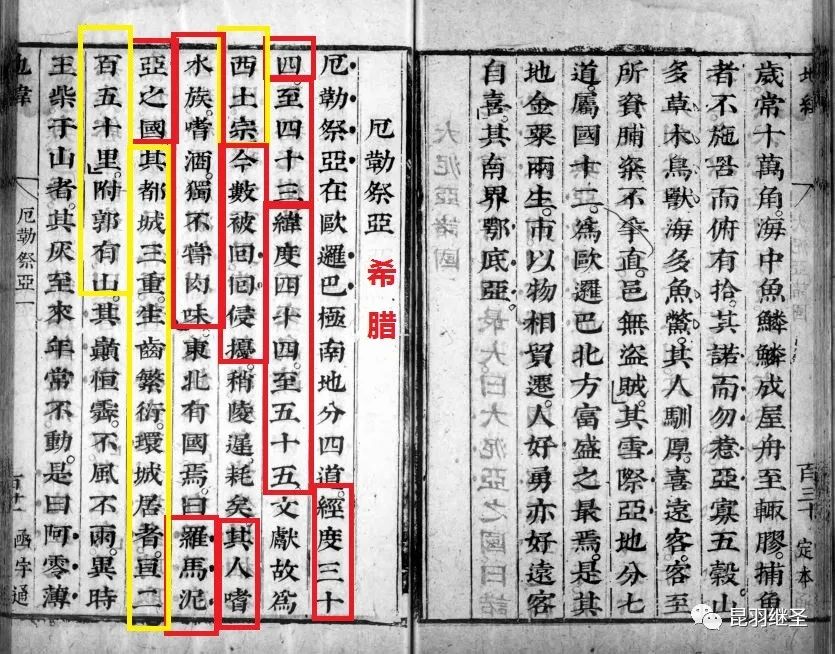 地緯
百三十 定本
歲常十萬角。海中魚鱗鱗成屋舟至輙膠。捕魚
者不施罟而俯有拾。其諾而勿惹亞寡五穀。山
多草木鳥獸。海多魚鱉。其人馴厚。喜遠客。客至
所資脯粢不爭直。邑無盜賊。其雪際亞地分七
道。屬國十二。為歐邏巴北方富盛之最焉。是其
地金粟兩生。市以物相貿遷。人好勇亦好遠客
自喜。其南界鄂底亞。
厄勒祭亞
希腊
厄勒祭亞在歐邏巴極南地分四道。經度三十
四至四十三緯度四十四。至五十五文獻故為
西土宗今數被回回侵擾。稍陵遲耗矣。其人嗜
水族。嗜酒。獨不嘗肉味。東北有國焉。曰羅馬泥
亞之國其都城三重。生齒繁衍。環城居者。亘二
百五十里。附郭有山。其巔恒霽。不風不雨。異時
王柴于山者。其灰至來年常不動。是曰阿零薄
地緯
厄勒祭亞一
函宇通
昆羽继圣